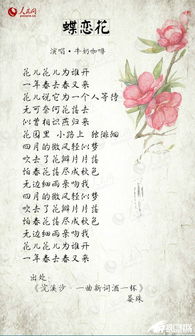 人民网
蝶恋花
演唱·牛奶咖啡
花儿花儿为谁开
一年春去春又来
花儿说它为一个人等待
无可奈何花落去
似曾相识燕归来
花园里 小路上 独徘徊
四月的微风轻似梦
吹去了花瓣片片落
怕春花落尽成秋色
无边细雨亲吻我
四月的微风轻似梦
吹去了花瓣片片落
怕春花落尽成秋色
无边细雨亲吻我
花儿花儿为谁开
一年春去春又来
出处:
《浣溪沙·一曲新词酒一杯》
晏殊